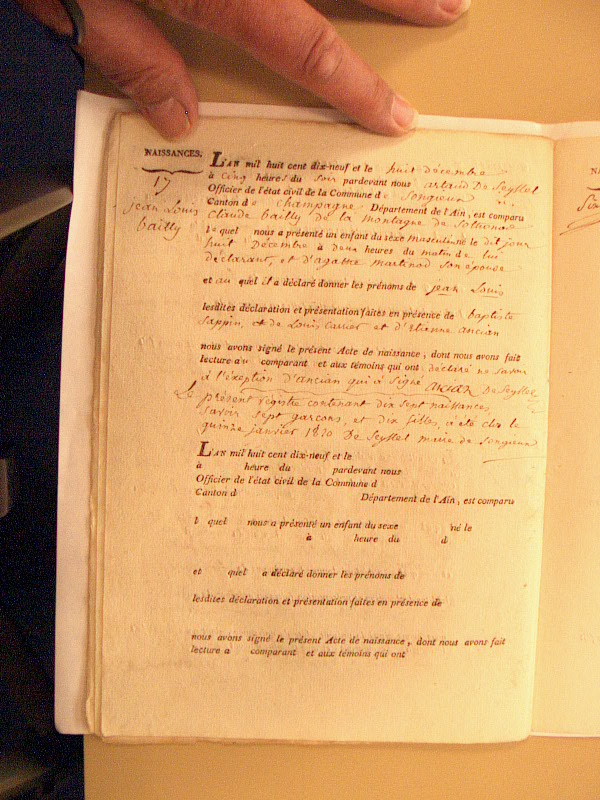 NAISSANCES.
17
jean Louis
bailly
L'AN mil huit cent dix-neuf et le huit décembre
à cinq heures du soir pardevant nous artaud De Seyssel
Officier de l'état civil de la Commune de Songieux
Canton de champagne Département de l'Ain, est comparu
Claude bailly de la montagne de
lequel nous a présenté un enfant du sexe masculin né le dit jour
huit Décembre à deux heures du matin de lui
déclarant, et d'agathe martinod son épouse
et auquel il a déclaré donner les prénoms de jean Louis
lesdites déclaration et présentation faites en présence de baptiste
Sappin, et de Louis carrier et d'Etienne ancian
nous avons signé le présent Acte de naissance, dont nous avons fait
lecture au comparant et aux témoins qui ont déclaré ne savoir
à l'éxeption d'ancian qui a signé ancian De Seyssel
Le présent registre contenant dix sept naissances,
savoir sept garçons, et dix filles, a été clos le
quinze janvier 1820 De Seyssel maire de Songieux
L'AN mil huit cent dix-neuf et le
à heure du pardevant nous
Officier de l'état civil de la Commune d
Canton d Département de l'Ain, est comparu
l quel nous a présenté un enfant du sexe né le
à heure du d
et quel a déclaré donner les prénoms de
lesdites déclaration et présentation faites en présence de
nous avons signé le présent Acte de naissance, dont nous avons fait
lecture a comparant et aux témoins qui ont
NA